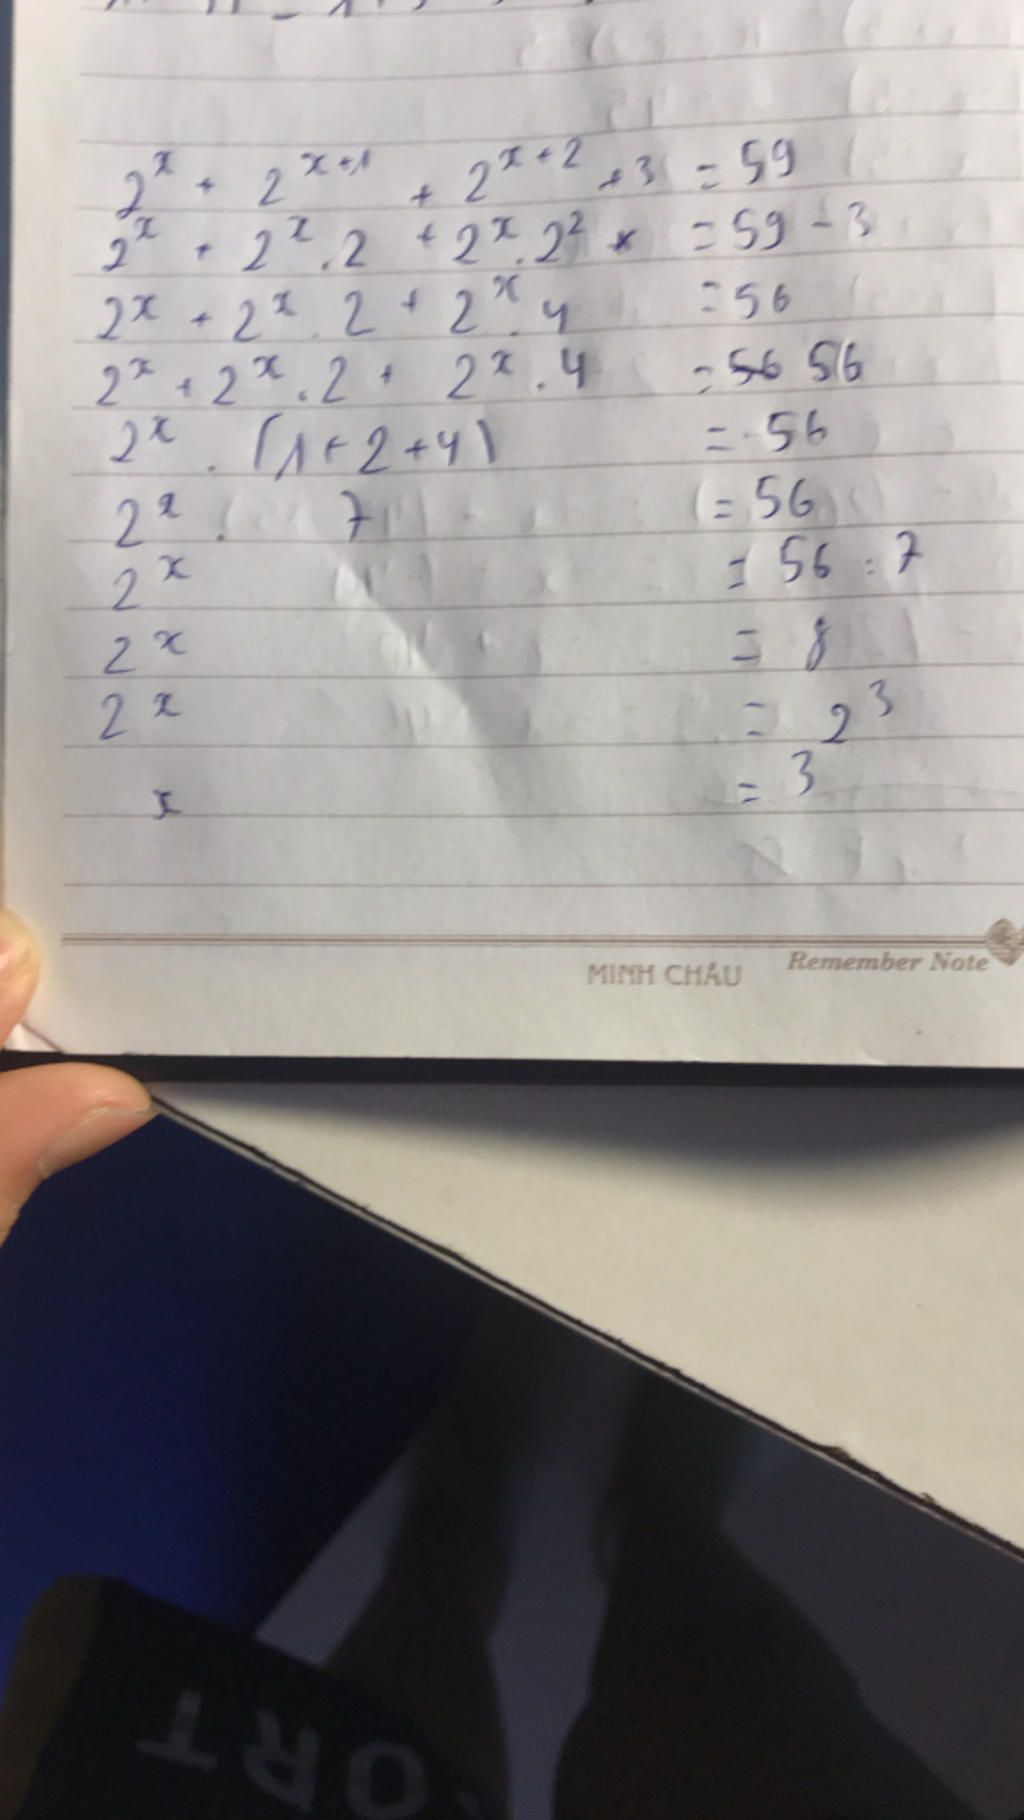 2^x + 2^{x+1} + 2^{x+2} + 3 = 59
2^x + 2^x . 2 + 2^x . 2^2 = 59 - 3
2^x + 2^x . 2 + 2^x . 4 = 56
2^x + 2^x . 2 + 2^x . 4 = 56 56
2^x . (1+2+4) = 56
2^x . 7 = 56
2^x = 56 : 7
2^x = 8
2^x = 2^3
x = 3
MINH CHÂU Remember Note
ORT